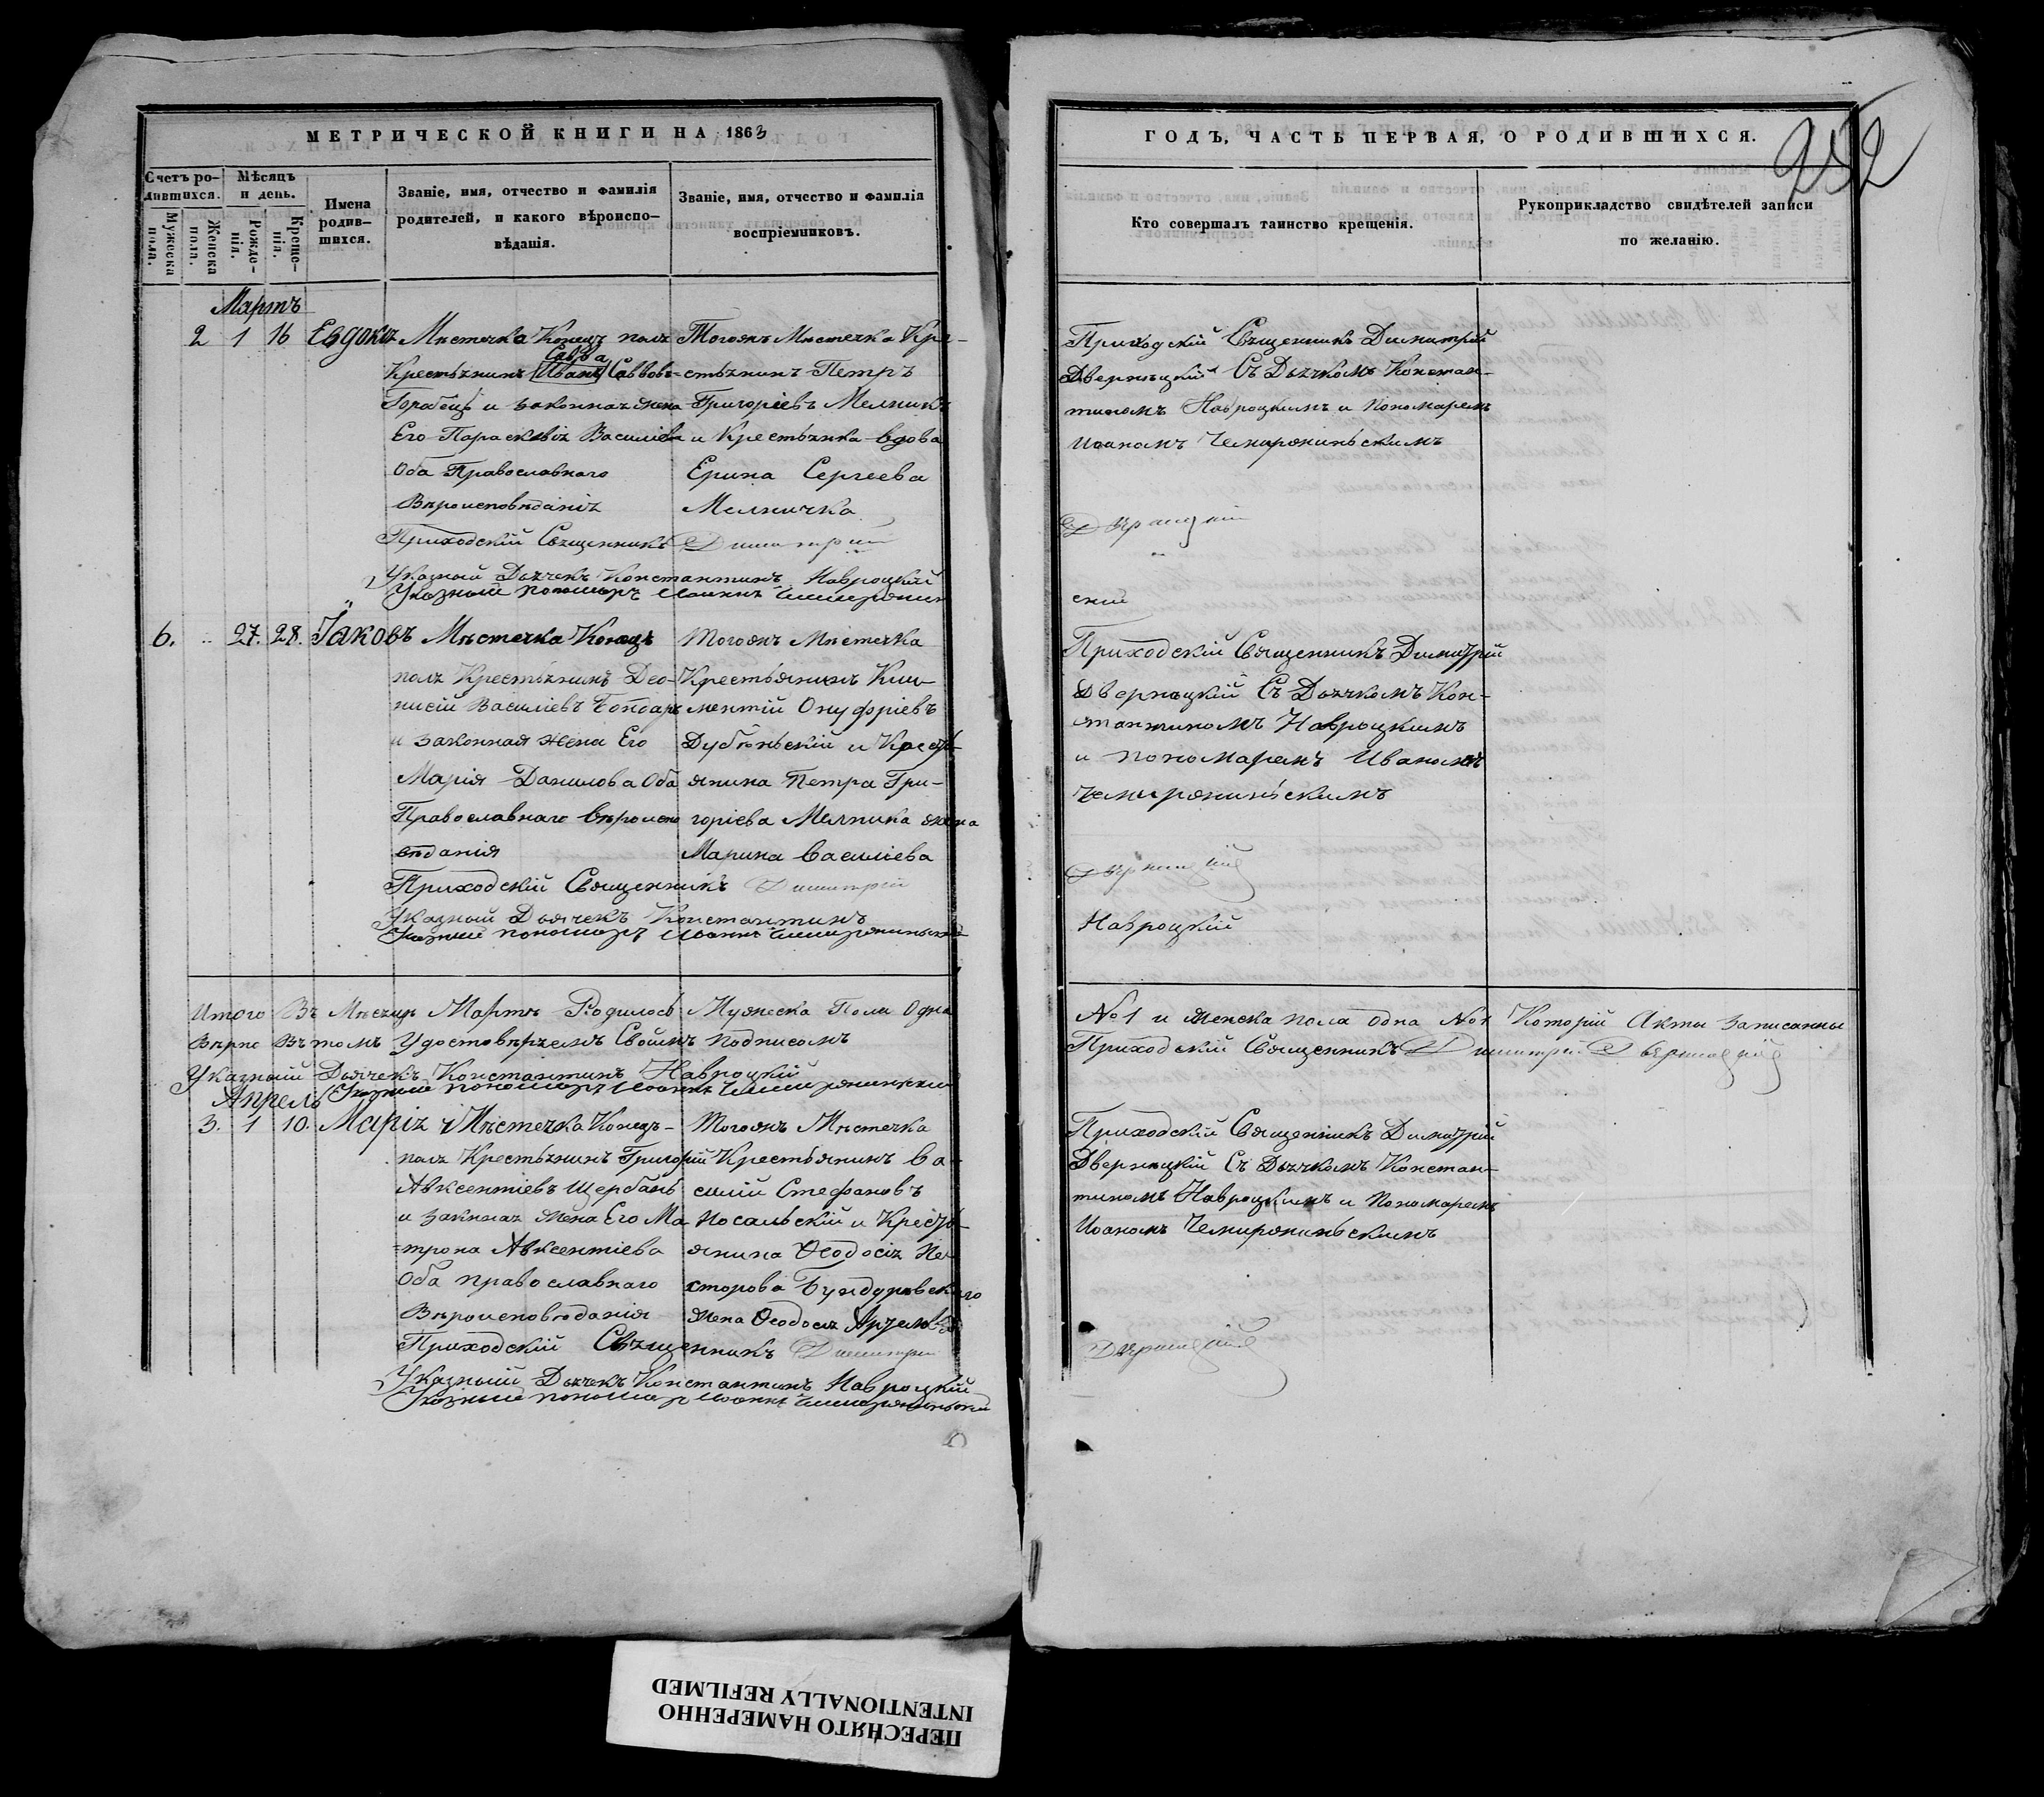 МЕТРИЧЕСКОЙ КНИГИ НА 1863
Счетъ ро-
дившихся.
Мужеска
пола.
Женска
пола.
Мѣсяцъ
и день.
Рожде-
нія.
Креще-
нія.
Имена
родив-
шихся.
Званіе, имя, отчество и фамилія
родителей, и какого вѣроиспо-
вѣданія.
Званіе, имя, отчество и фамилія
воспріемниковъ.
Мартъ
2 1 16 Мѣстечка Конец
Савва
Крестьянинъ Иванъ Саввовъ
и законная жена
Его Параскевія Василіева
Оба Православнаго
Вѣроисповѣданія
Тогожъ Мѣстечка Кре-
стьянинъ Петръ
Григоріевъ Мелникъ
и Крестьянка вдова
Ерина Сергеева
Мелничка
Приходскій Священникъ Димитрій
Указный Дьячекъ Константинъ Навроцкій
Указный пономарь Іоаннъ
6. 27. 28. Іаковъ Мѣстечка Конецъ
поля Крестьянинъ Део-
нисій Василіевъ Бондарь
и законная жена Его
Марія Данилова Оба
Православнаго вѣроиспо
вѣданія
Тогожъ Мѣстечка
Крестьянинъ Кли-
ментій Онуфріевъ
и Крестья-
янина Петра Гри-
горіева Мелника жена
Марина Василіева
Приходскій Священникъ Димитрій
Указный Дьячекъ Константинъ
Указный пономарь Іоаннъ
Итого Въ Мѣсяцѣ Мартѣ Родилось Мужеска Пола Одна
Вѣрно Въ томъ Удостовѣряемъ Своимъ подписомъ
Указный Дьячекъ Константинъ Навроцкій
Апрель Указный пономарь Іоаннъ
3. 1 10. Марія Мѣстечка Конец-
поля Крестьянинъ Григорій
Авксентіевъ Щербань
и закнная жена Его Ма
трона Авксентіева
Оба православнаго
Вѣроисповѣданія
Тогожъ Мѣстечка
Крестьянинъ Ва-
силій Стефановъ
Посальскій и Крестья-
янина Ѳеодосія Не-
сторова
жена Ѳеодосія
Приходскій Священникъ Димитрій
Указный Дьячекъ Константинъ Навроцкій
Указный пономарь Іоаннъ
ГОДЪ, ЧАСТЬ ПЕРВАЯ, О РОДИВШИХСЯ.
252
Кто совершалъ таинство крещенія.
Рукоприкладство свидѣтелей записи
по желанію.
Приходскій Священникъ Димитрій
Дверницкій Съ Дьячкомъ Констан-
тиномъ Навроцкимъ и Пономаремъ
Иоаномъ
ский
Приходскій Священникъ Димитрій
Дверницкій Съ Дьячкомъ Кон-
стантиномъ Навроцкимъ
и пономаремъ Иваномъ
Навроцкій
No 1 и Женска пола Одна No 1 Которій Акты Записанны
Приходскій Священникъ Димитрій Дверницкій
Приходскій Священникъ Димитрій
Дверницкій Съ Дьячкомъ Констан-
тиномъ Навроцкимъ и Пономаремъ
Иоаномъ
Дверницкій
ПЕРЕСНЯТО НАМЕРЕННО
INTENTIONALLY REFILMED